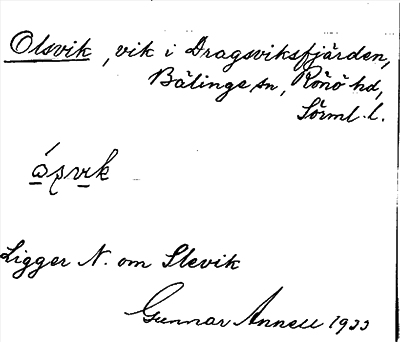 Olsvik, vik i Dragsviksfjärden,
Bälinge sn, Rönö hd,
Sörml. l.
Ligger N. om Slevik
Gunnar Annell 1933